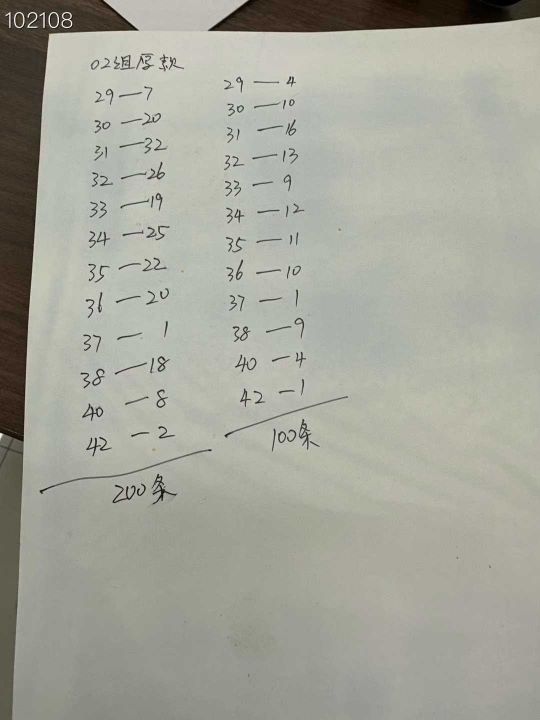 102108
02组厚款
29—7
30—20
31—32
32—26
33—19
34—25
35—22
36—20
37—1
38—18
40—8
42—2
200条
29—4
30—10
31—16
32—13
33—9
34—12
35—11
36—10
37—1
38—9
40—4
42—1
100条